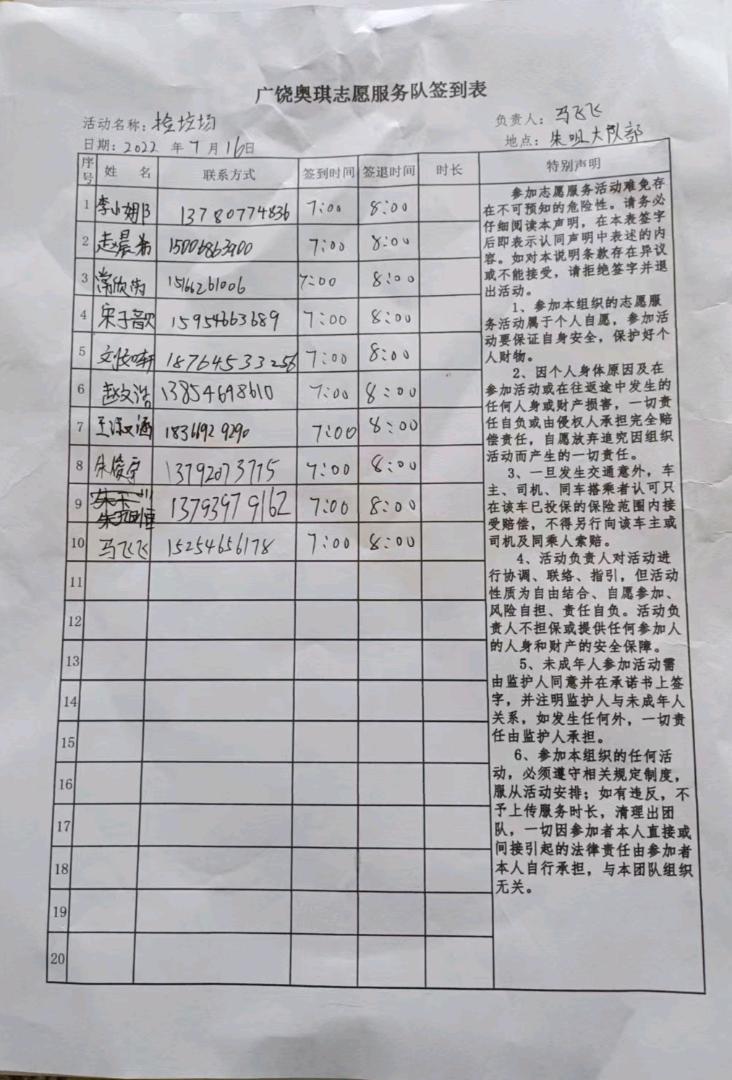 广饶奥琪志愿服务队签到表
活动名称：捡垃圾
负责人：马飞飞
日期：2022 年 7 月 16日
地点：朱咀大队部
序号 姓 名 联系方式 签到时间 签退时间 时长 特别声明
1 13780774836 7:00 8:00
2 赵晨 15006863900 7:00 8:00
3 15166261006 7:00 8:00
4 宋子歆 15954663689 7:00 8:00
5 18764533256 7:00 8:00
6 赵文浩 13854698610 7:00 8:00
7 涵 7:00 8:00
8 朱俊宇 13792073775 7:00 8:00
9 恒 13793979162 7:00 8:00
10 马飞飞 15254656178 7:00 8:00
11
12
13
14
15
16
17
18
19
20
参加志愿服务活动难免存
在不可预知的危险性。请务必
仔细阅读本声明，在本表签字
后即表示认同声明中表述的内
容。如对本说明条款存在异议
或不能接受，请拒绝签字并退
出活动。
1、参加本组织的志愿服
务活动属于个人自愿，参加活
动要保证自身安全，保护好个
人财物。
2、因个人身体原因及在
参加活动或在往返途中发生的
任何人身或财产损害，一切责
任自负或由侵权人承担完全赔
偿责任，自愿放弃追究因组织
活动而产生的一切责任。
3、一旦发生交通意外，车
主、司机、同车搭乘者认可只
在该车已投保的保险范围内接
受赔偿，不得另行向该车主或
司机及同乘人索赔。
4、活动负责人对活动进
行协调、联络、指引，但活动
性质为自由结合、自愿参加、
风险自担、责任自负。活动负
责人不担保或提供任何参加人
的人身和财产的安全保障。
5、未成年人参加活动需
由监护人同意并在承诺书上签
字，并注明监护人与未成年人
关系，如发生任何外，一切责
任由监护人承担。
6、参加本组织的任何活
动，必须遵守相关规定制度，
服从活动安排；如有违反，不
予上传服务时长，清理出团
队，一切因参加者本人直接或
间接引起的法律责任由参加者
本人自行承担，与本团队组织
无关。